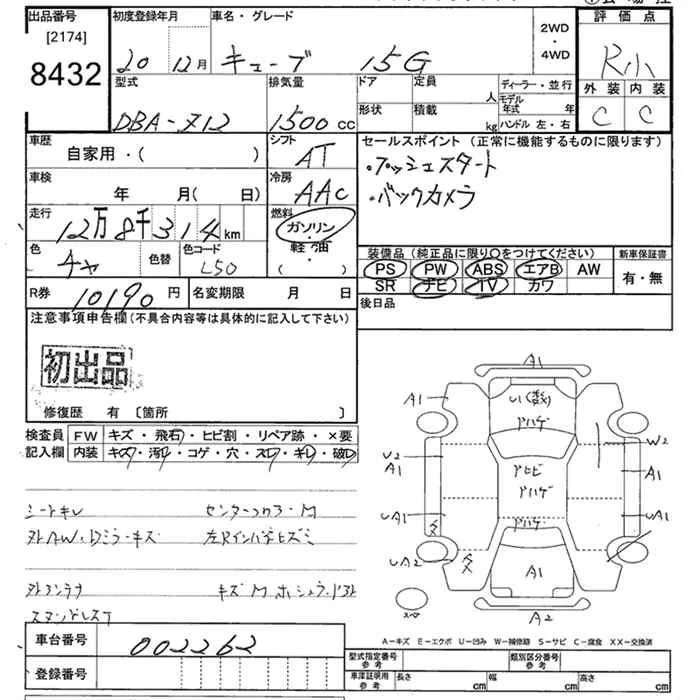 出品番号 初度登録年月 車名・グレード 評価点
[2174]
8432
20 12月 キューブ 15G 2WD・4WD R小
型式 排気量 ドア 定員 人 ディーラー・並行 外装 内装
DBA-Z12 1500cc 形状 積載 kg モデル年式 年 ハンドル 左・右 C C
車歴 シフト セールスポイント (正常に機能するものに限ります)
自家用・( ) AT ・プッシュスタート
車検 冷房 ・バックカメラ
年 月(日) AAC
走行 燃料
12万8千314km ガソリン・軽油
色 色替 色コード 装備品 (純正品に限り○をつけてください) 新車保証書
チャ L50 ( ) PS PW ABS エアB AW 有・無
R券 10190円 名変期限 月 日 SR ナビ TV カワ
後日品
注意事項申告欄(不具合内容等は具体的に記入して下さい)
初出品
修復歴 有 〔箇所 〕
検査員 FW キズ・飛石・ヒビ割・リペア跡・×要
記入欄 内装 キズ・汚レ・コゲ・穴・スレ・キレ・破レ
A1
A1 U1(数)
ドハゲ
U2 W2
A1 アヒビ A1
ドハゲ
UA1 ドハゲ UA1
UA2 タメ A1
スペ
A2
シートキレ センターコンソ・M
左RインパネヒズミI
外アンテナ
車台番号 002262
登録番号
A-キズ E-エクボ U-凹み W-補修跡 S-サビ C-腐食 XX-交換済
型式指定番号 参考 類別区分番号 参考
車庫証明用 参考 長さ cm 幅 cm 高さ cm